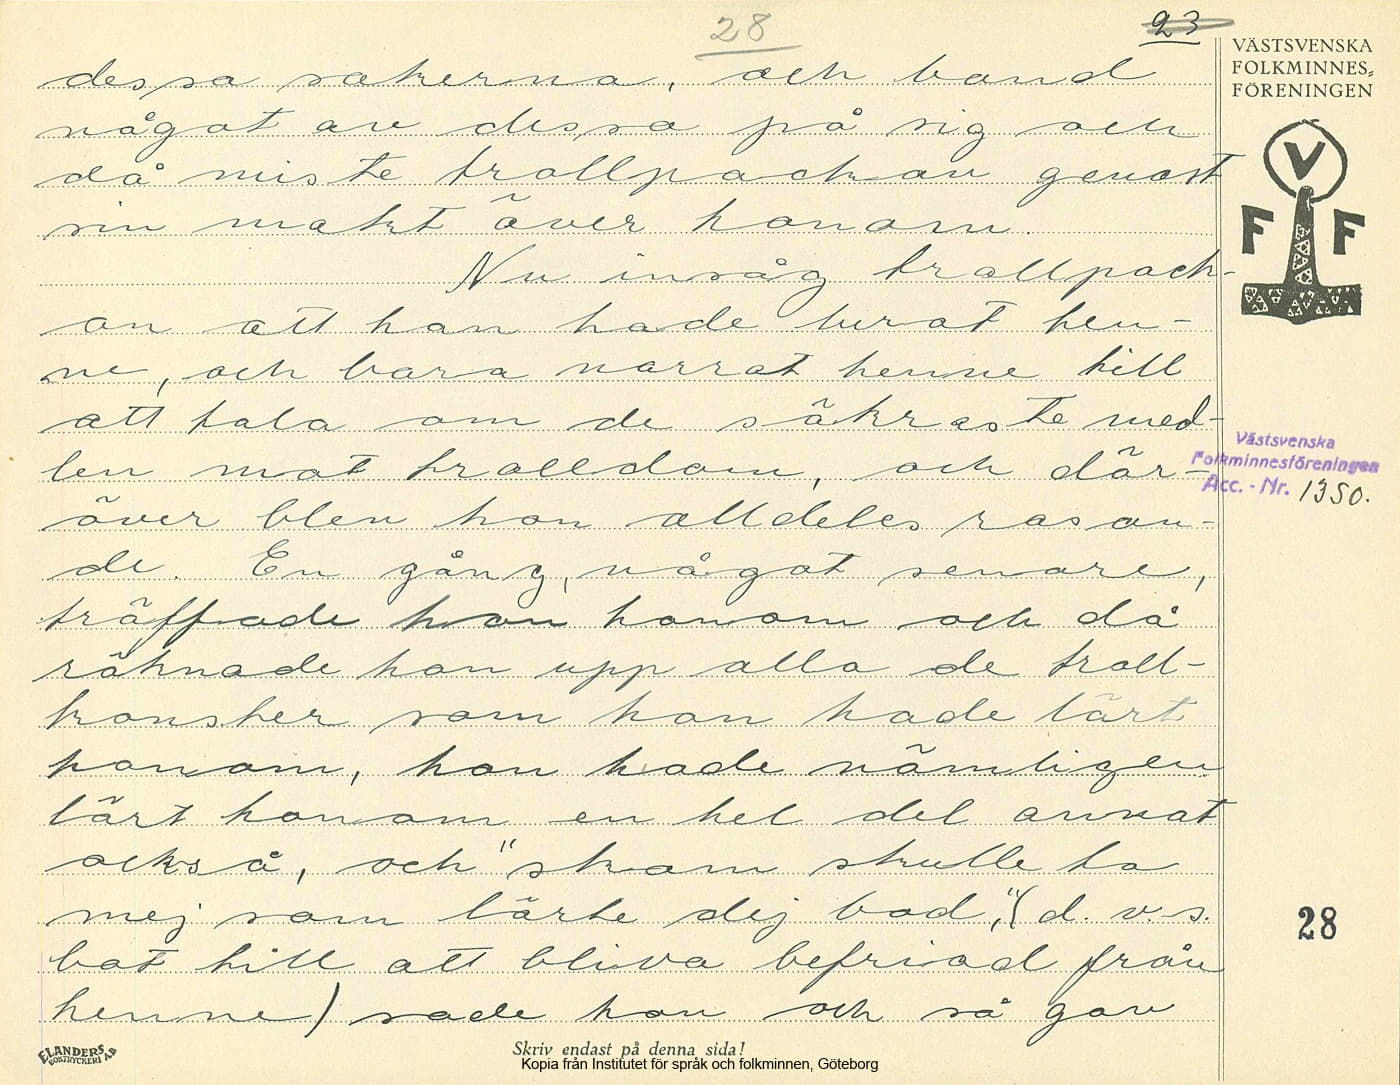 28
23
VÄSTSVENSKA
FOLKMINNES=
FÖRENINGEN
V
F F
dessa sakerna, och band
något av dessa på sig och
då miste trollpackan genast
sin makt över honom.
Nu insåg trollpack-
an att han hade lurat hen-
ne, och bara narrat henne till
att tala om de säkraste med-
len mot trolldom, och där-
över blev hon alldeles rasan-
de. En gång, något senare,
träffade hon honom och då
räknade hon upp alla de troll-
konster som hon hade lärt
honom, hon hade nämligen
lärt honom en hel del annat
också, och "skam skulle ta
mej som lärte dej bod," (d. v. s.
bot till att bliva befriad från
henne) sade hon och så gav
Västsvenska
Folkminnesföreningen
Acc. - Nr. 1350.
28
ELANDERS
BOKTRYCKERI AB
Skriv endast på denna sida!
Kopia från Institutet för språk och folkminnen, Göteborg